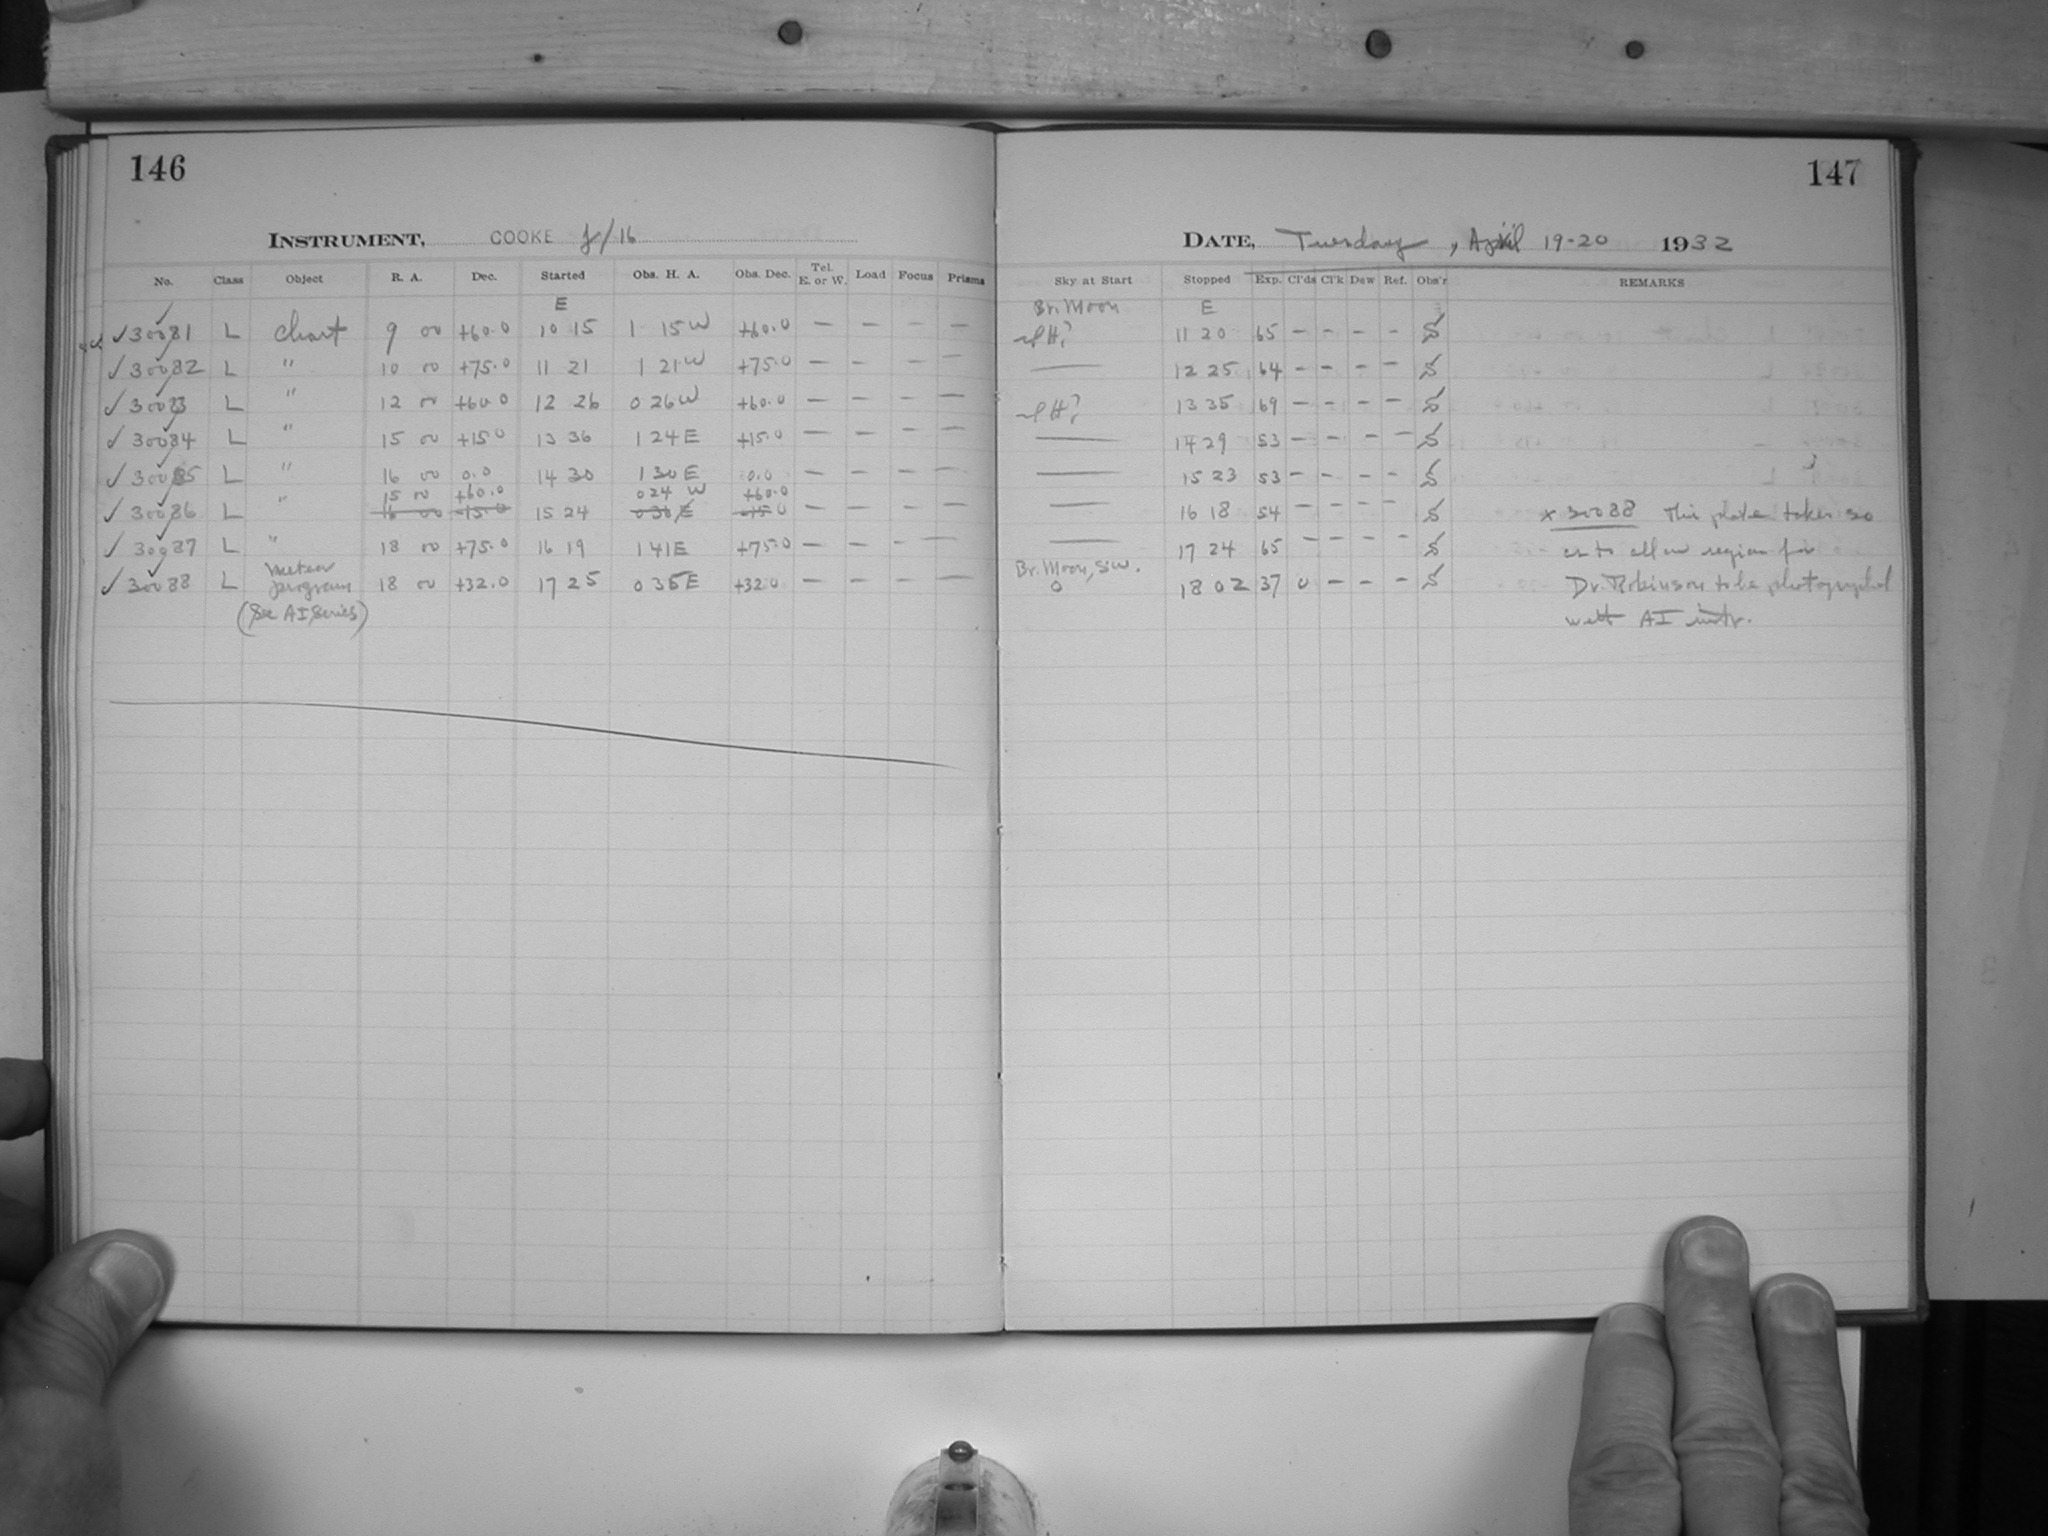 146
INSTRUMENT, COOKE f/16
No. Class Object R. A. Dec. Started Obs. H. A. Obs. Dec. Tel. E. or W. Load Focus Prisms
E
✓30081 L Chart 9 00 +60.0 10 15 1 15W +60.0 — — — —
✓30082 L " 10 00 +75.0 11 21 1 21W +75.0 — — — —
✓30083 L " 12 00 +60.0 12 26 0 26W +60.0 — — — —
✓30084 L " 15 00 +15.0 13 36 1 24E +15.0 — — — —
✓30085 L " 16 00 0.0 14 30 1 30E 0.0 — — — —
15 00 +60.0 0 24 W +60.0
✓30086 L " 16 00 -15.0 15 24 0 36 E -15.0 — — — —
✓30087 L " 18 00 +75.0 16 19 1 41E +75.0 — — — —
✓30088 L Meteor program 18 00 +32.0 17 25 0 35E +32.0 — — — —
(See AI Series)
147
DATE, Tuesday, April 19-20 1932
Sky at Start Stopped Exp. Cl'ds Cl'k Dew Ref. Obs'r REMARKS
Br. Moon E
H? 11 20 65 — — — —
— 12 25 64 — — — —
H? 13 35 69 — — — —
— 14 29 53 — — — —
— 15 23 53 — — — —
— 16 18 54 — — — — x 30088 This plate taken so
— 17 24 65 — — — — as to allow region for
Br. Moon, SW.
0 18 02 37 0 — — — Dr. Robinson to be photographed
with AI instr.